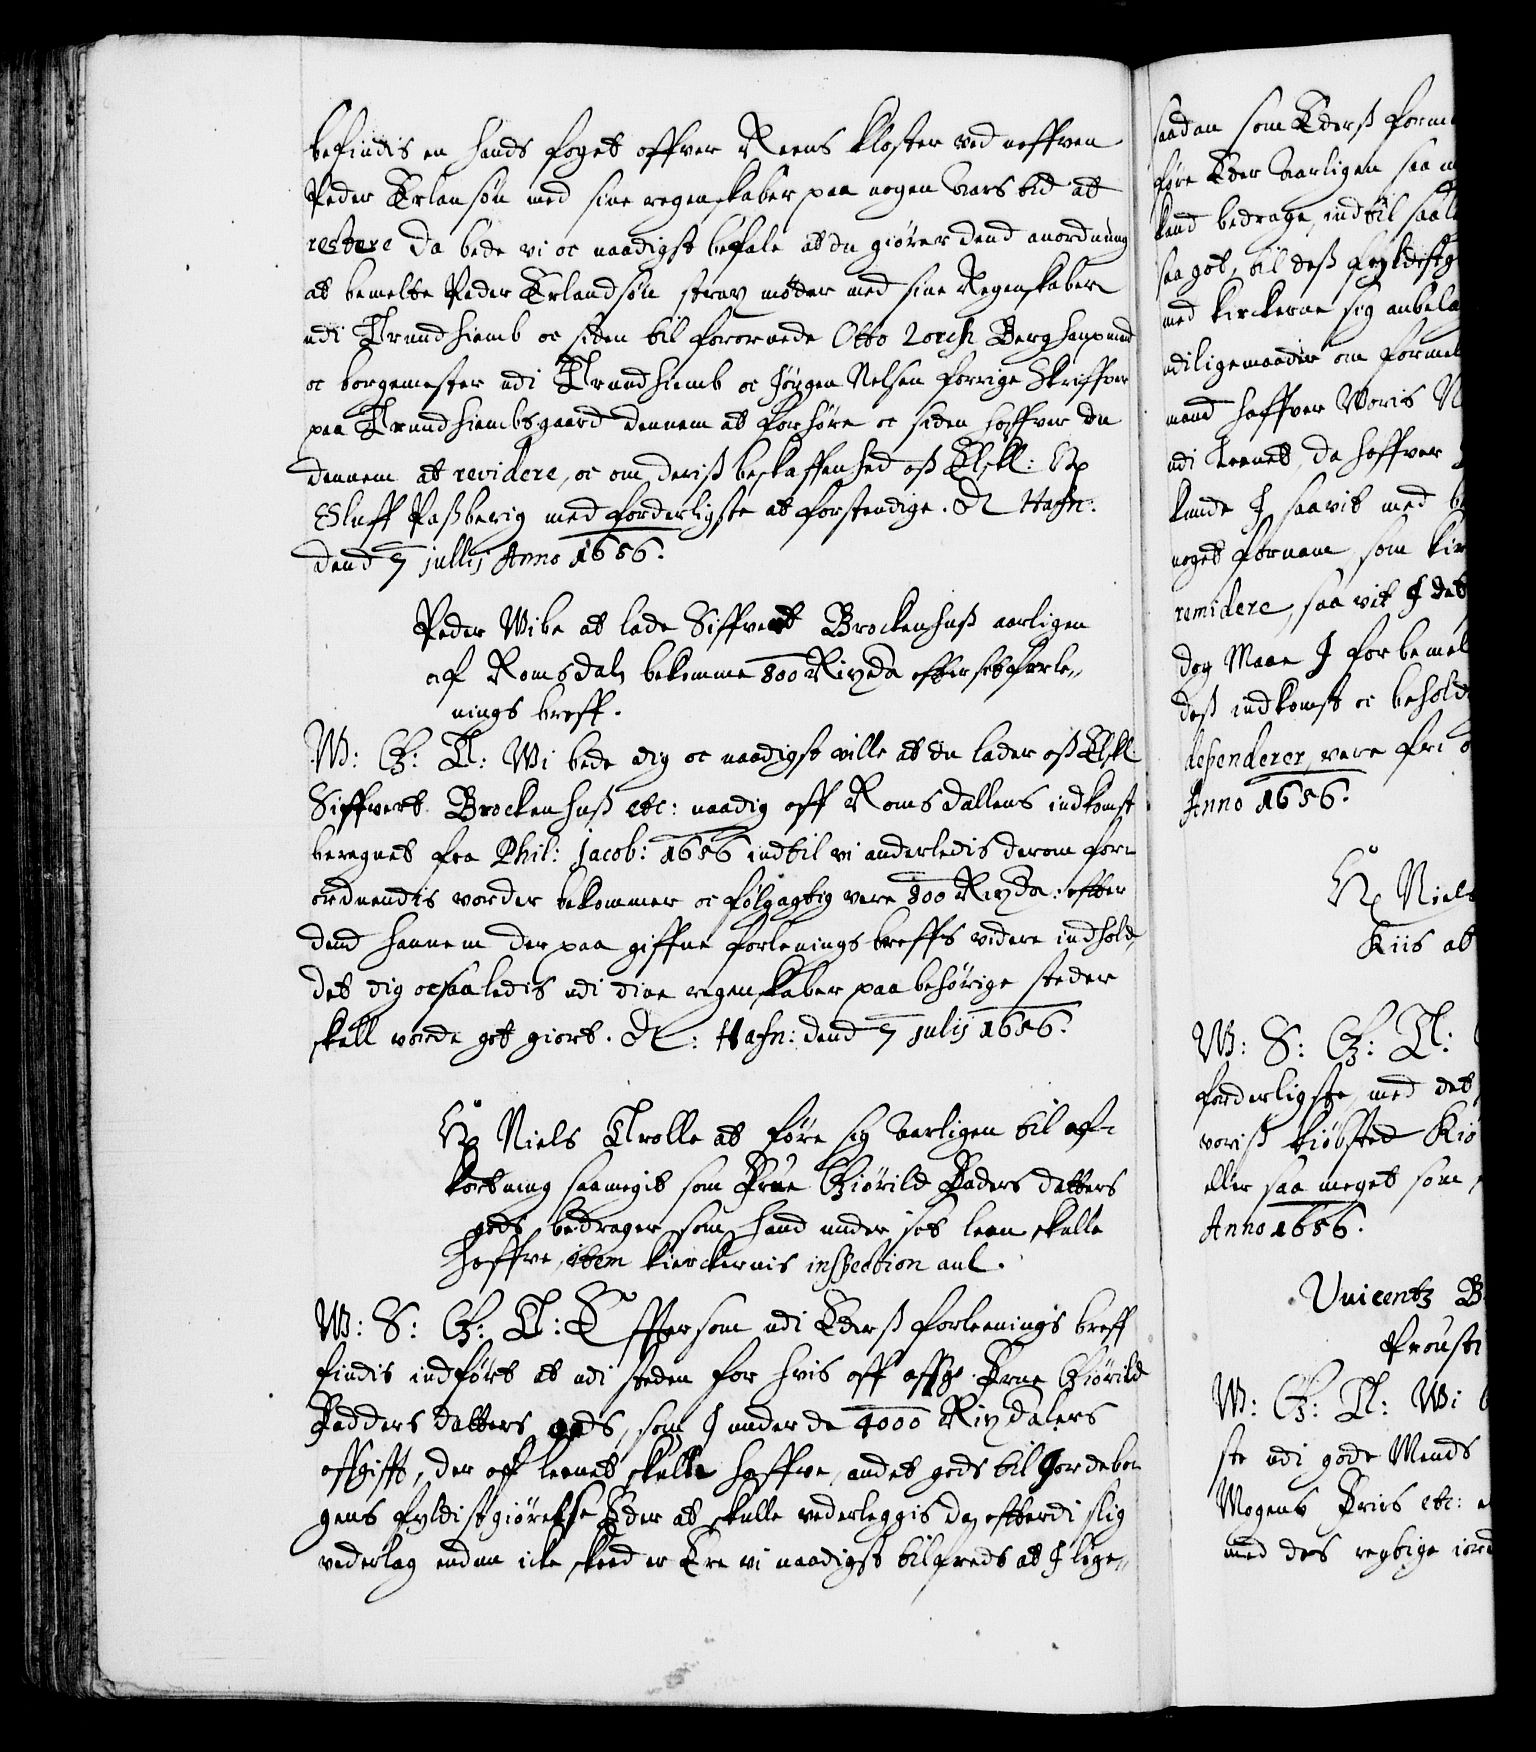 befindis en hands foget offver Reens Kloster ved neffven
Peder Erlansøn med sine regenskaber paa nogen Aars tid at
restere da bede vi oc naadigst befale at du giører dend anordning
at bemelte Peder Erlandsøn strax møder med sine Regenskaber
udi Trundhiemb oc siden til forornede Otto Lorch Berghauptmand
oc borgemester udi Trundhiemb oc Jørgen Nelsen forrige Skriffver
paa Trundhiembsgaard dennem at forhøre oc siden haffver du
dennem at revidere, oc om deriß beskaffenhed oß Elskl: Hr
Oluff Paßberig med forderligste at forstendige. Dt Hafn:
dend 7 julij Anno 1656.
Peder Wibe at lade Siffvert Brockenhuß aarligen
af Romsdal bekomme 800 Rixda efter sit forle-
nings breff.
W: G: T: Wi bede dig oc naadigst ville at du lader oß Elskl:
Siffvert Brockenhuß etc: naadig aff Romsdallens indkomst
beregnet fra Phil: Jacob: 1656 indtil vi anderledis derom for-
ordnendis vorder bekommer oc følgagtig vere 800 Rixda: efter
dend hannem der paa giffne forlenings breffs videre indhold,
det dig ocsaaledis udi dine regenskaber paa behørige steder
skall vorde got giort. Dt: Hafn: dend 7 julij 1656.
Hr Niels Trolle at føre sig Aarligen til af-
kortning saamegit som Frue Giørild Faders datters
gods bedrager som hand under sit leen skulle
haffve, item kierckernis inspection anl.
W: S: G: T: Effter som udi Ederß forlenings breff
findis indført at udi steden for hvis aff affg: Frue Giørild
Fadders datters gods, som I under de 4000 Rixdalers
affgifft, der aff leenet skulle haffve, andet gods til Jordebo-
gens fyldistgiørelse Eder at skulle vederleggis da efterdi slig
vederlag endnu icke skeed er Ere vi naadigst tilfreds at I lige-
saadan som Ederß
føre Eder Aarligen saa
kand bedrage, indtil
saa got, til deß fyldistg
med kirckerne sig anbela
udiligemaader om
mand haffver Woris
udi Leenet, da haffver
kunde I saavit med
noget fornem som
remidere, saa vit I det
dog Maae I for bemel
deß indkomst oc behold
dependerer, vere fri
Anno 1656.
Hr Niels
Kiis at
W: S: G: T:
forderligste med det
voriß kiøbsted Kiø
eller saa meget som
Anno 1656.
Vuicentz B
Prousti
W: G: T: Wi
ste udi gode Mends
Mogens Friis etc:
med des regtige